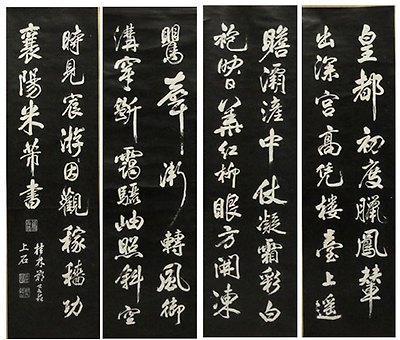 皇都初度臘鳳輦
出深宮高凭樓臺上遥
瞻灞滻中仗凝霜彩白
袍映日華紅柳眼方開凍
鸎聲漸轉風御
溝穿斷靄驪岫照斜空
時見宸遊因觀稼穡功
襄陽米芾書
桂林
上石